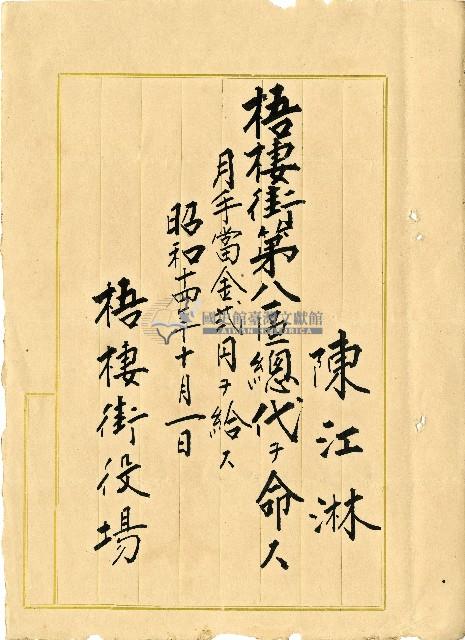 陳江淋
梧棲街第八區總代ヲ命ス
月手當金貳円ヲ給ス
昭和十四年十月一日
梧棲街役場
國史館臺灣文獻館
TAIWAN HISTORICA